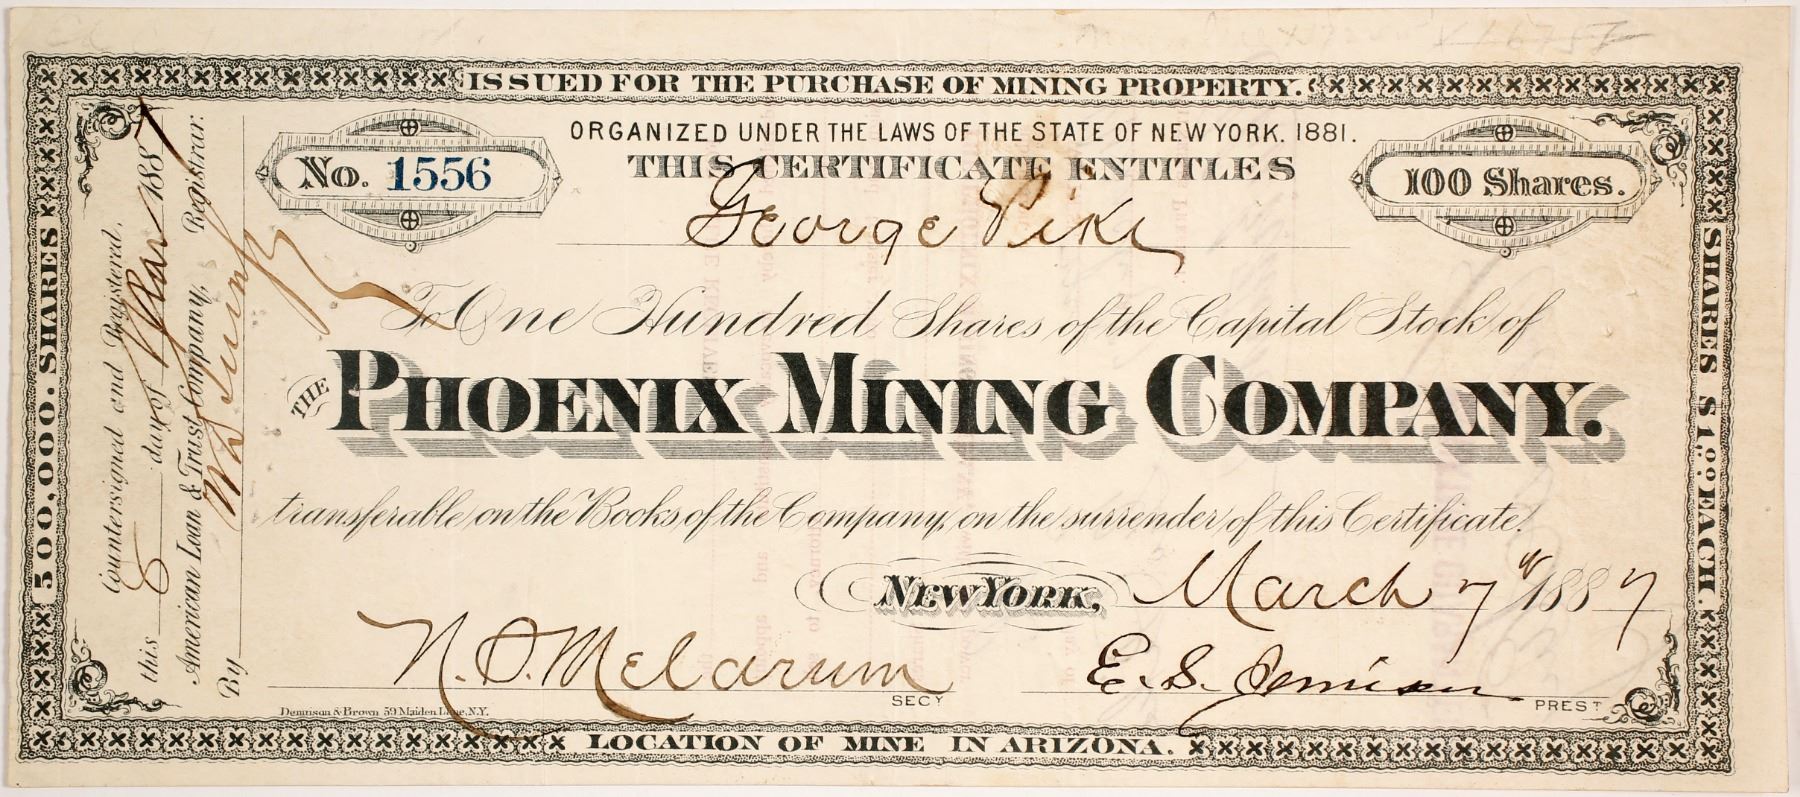 ISSUED FOR THE PURCHASE OF MINING PROPERTY.
ORGANIZED UNDER THE LAWS OF THE STATE OF NEW YORK. 1881.
No. 1556
THIS CERTIFICATE ENTITLES
100 Shares.
George Pike
To One Hundred Shares of the Capital Stock of
THE PHOENIX MINING COMPANY.
transferable on the Books of the Company, on the surrender of this Certificate.
NEW YORK, March 7th 1887
E. S. Jennison
SECY
PREST
Dennison & Brown 59 Maiden Lane, N.Y.
LOCATION OF MINE IN ARIZONA.
500,000. SHARES
SHARES $1.00 EACH.
Countersigned and Registered.
this 8 day of Mar 1887
American Loan & Trust Company, Registrar.
By